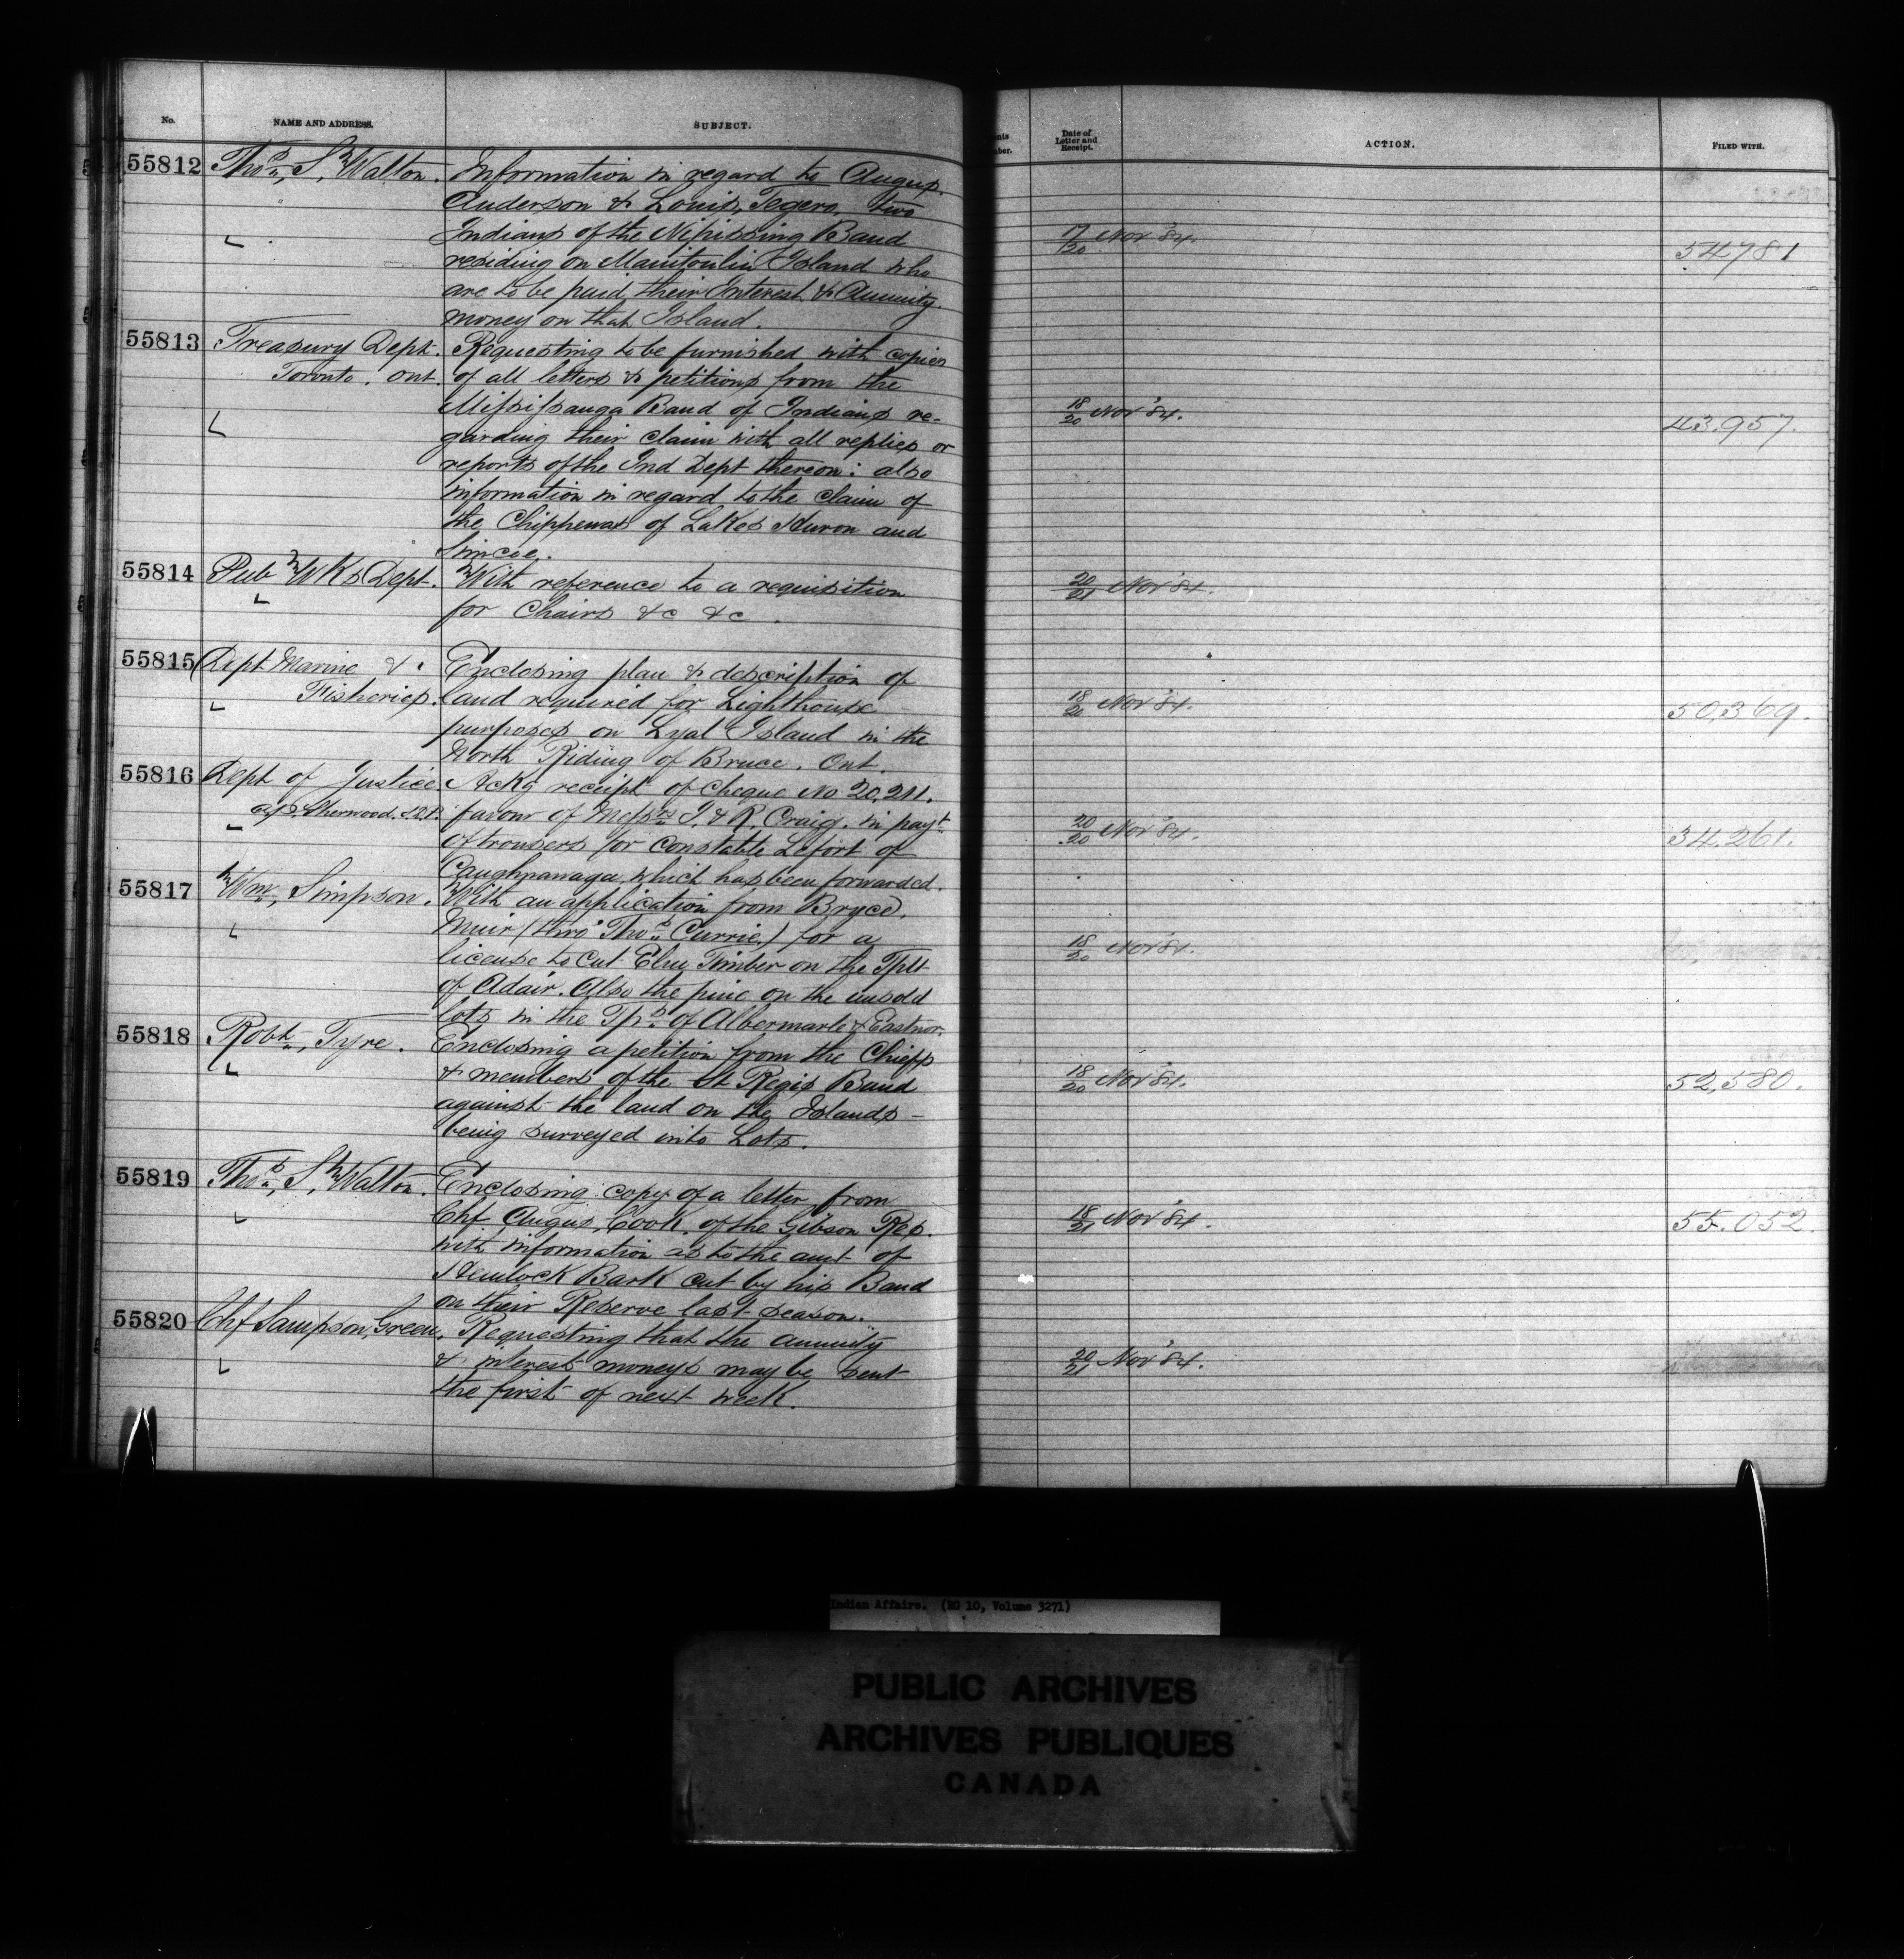 No.
NAME AND ADDRESS.
SUBJECT.
Date of
Letter and
Receipt.
ACTION.
FILED WITH.
55812 Thos. S. Walton. Information in regard to Angus
Anderson & Louis, Tegero, two
Indians of the Nipissing Band
residing on Manitoulin Island who
are to be paid their Interest & Annuity
money on that Island.
17/20 Nov '84. 54781
55813 Treasury Dept. Requesting to be furnished with copies
Toronto. Ont. of all letters & petitions from the
Mississauga Band of Indians re-
garding their claim with all replies or
reports of the Ind Dept thereon: also
information in regard to the claim of
the Chippewas of Lakes Huron and
Simcoe.
18/20 Nov '84. 43.957.
55814 Pub Wks Dept. With reference to a requisition
for Chairs &c &c.
20/21 Nov '84.
55815 Dept Marine & Enclosing plan & description of
Fisheries. land required for Lighthouse
purposes on Lyal Island in the
North Riding of Bruce. Ont.
18/20 Nov '84. 50,369.
55816 Dept of Justice Ackg receipt of cheque No 20,211.
Sherwood. favour of Messrs J. & R. Craig. in payt
of trousers for constable Lefort of
Caughnawaga, which has been forwarded.
20/20 Nov '84. 34.261.
55817 Wm. Simpson. With an application from Bryce
Muir (thro' Thos. Currie) for a
license to cut Elm Timber on the Tplt
of Adair. Also the pine on the unsold
lots in the Tps. of Albermarle & Eastnor.
18/20 Nov '84.
55818 Robt. Tyre. Enclosing a petition from the Chiefs
& members of the St Regis Band
against the land on the Islands -
being surveyed into Lots.
18/20 Nov '84. 52,580.
55819 Thos. S. Walton. Enclosing copy of a letter from
Chf. Angus, Cook, of the Gibson Res.
with information as to the amt of
Hemlock Bark cut by his Band
on their Reserve last season.
18/21 Nov '84. 55.052.
55820 Chf Sampson, Green. Requesting that the annuity
& interest moneys may be sent
the first of next week.
20/21 Nov '84.
Indian Affairs. (RG 10, Volume 3271)
PUBLIC ARCHIVES
ARCHIVES PUBLIQUES
CANADA